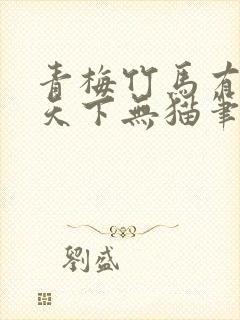 青梅竹馬有
天下無猫筆
劉盛